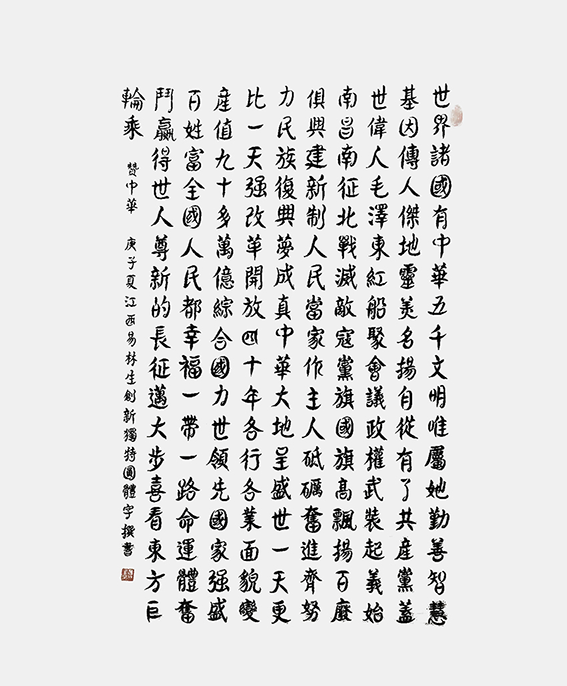 世界諸國有中華五千文明唯屬她勤善智慧
基因傳人傑地靈美名揚自從有了共産黨蓋
世偉人毛澤東紅船聚會議政權武裝起義始
南昌南征北戰滅敵寇黨旗國旗高飄揚百廢
俱興建新制人民當家作主人砥礪奮進齊努
力民族復興夢成真中華大地呈盛世一天更
比一天强改革開放四十年各行各業面貌變
産值九十多萬億綜合國力世領先國家强盛
百姓富全國人民都幸福一帶一路命運體奮
鬥贏得世人尊新的長征邁大步喜看東方巨
輪乘 贊中華 庚子夏江西易林生創新獨特圓體字撰書